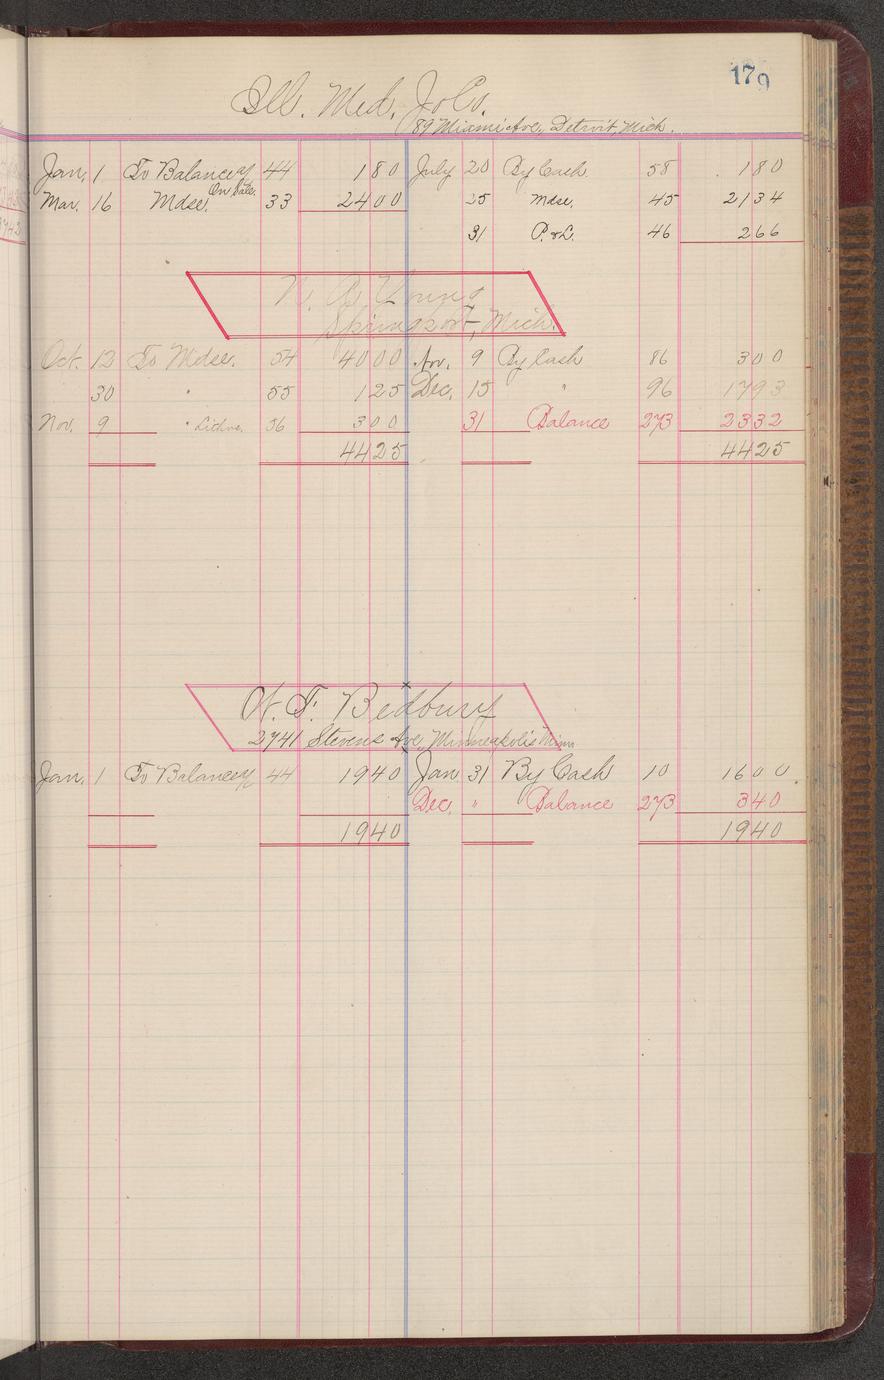 179
Ill. Med. Jo Co.
89 Miami Ave, Detroit, Mich.
Jan. 1 To Balance 44 180 July 20 By Cash 58 180
Mar. 16 Mdse. On Sale. 33 2400 25 Mdse. 45 2134
31 P. & L. 46 266
N. B. Young
Springport, Mich.
Oct. 13 To Mdse. 54 4000 Nov. 9 By Cash 86 300
30 " 55 125 Dec. 15 " 96 1793
Nov. 9 " 56 300 31 Balance 273 2332
4425 4425
W. F. Bedbury
2741 Stevens Ave, Minneapolis Minn
Jan. 1 To Balance 44 1940 Jan 31 By Cash 10 1600
Dec. " Balance 273 340
1940 1940